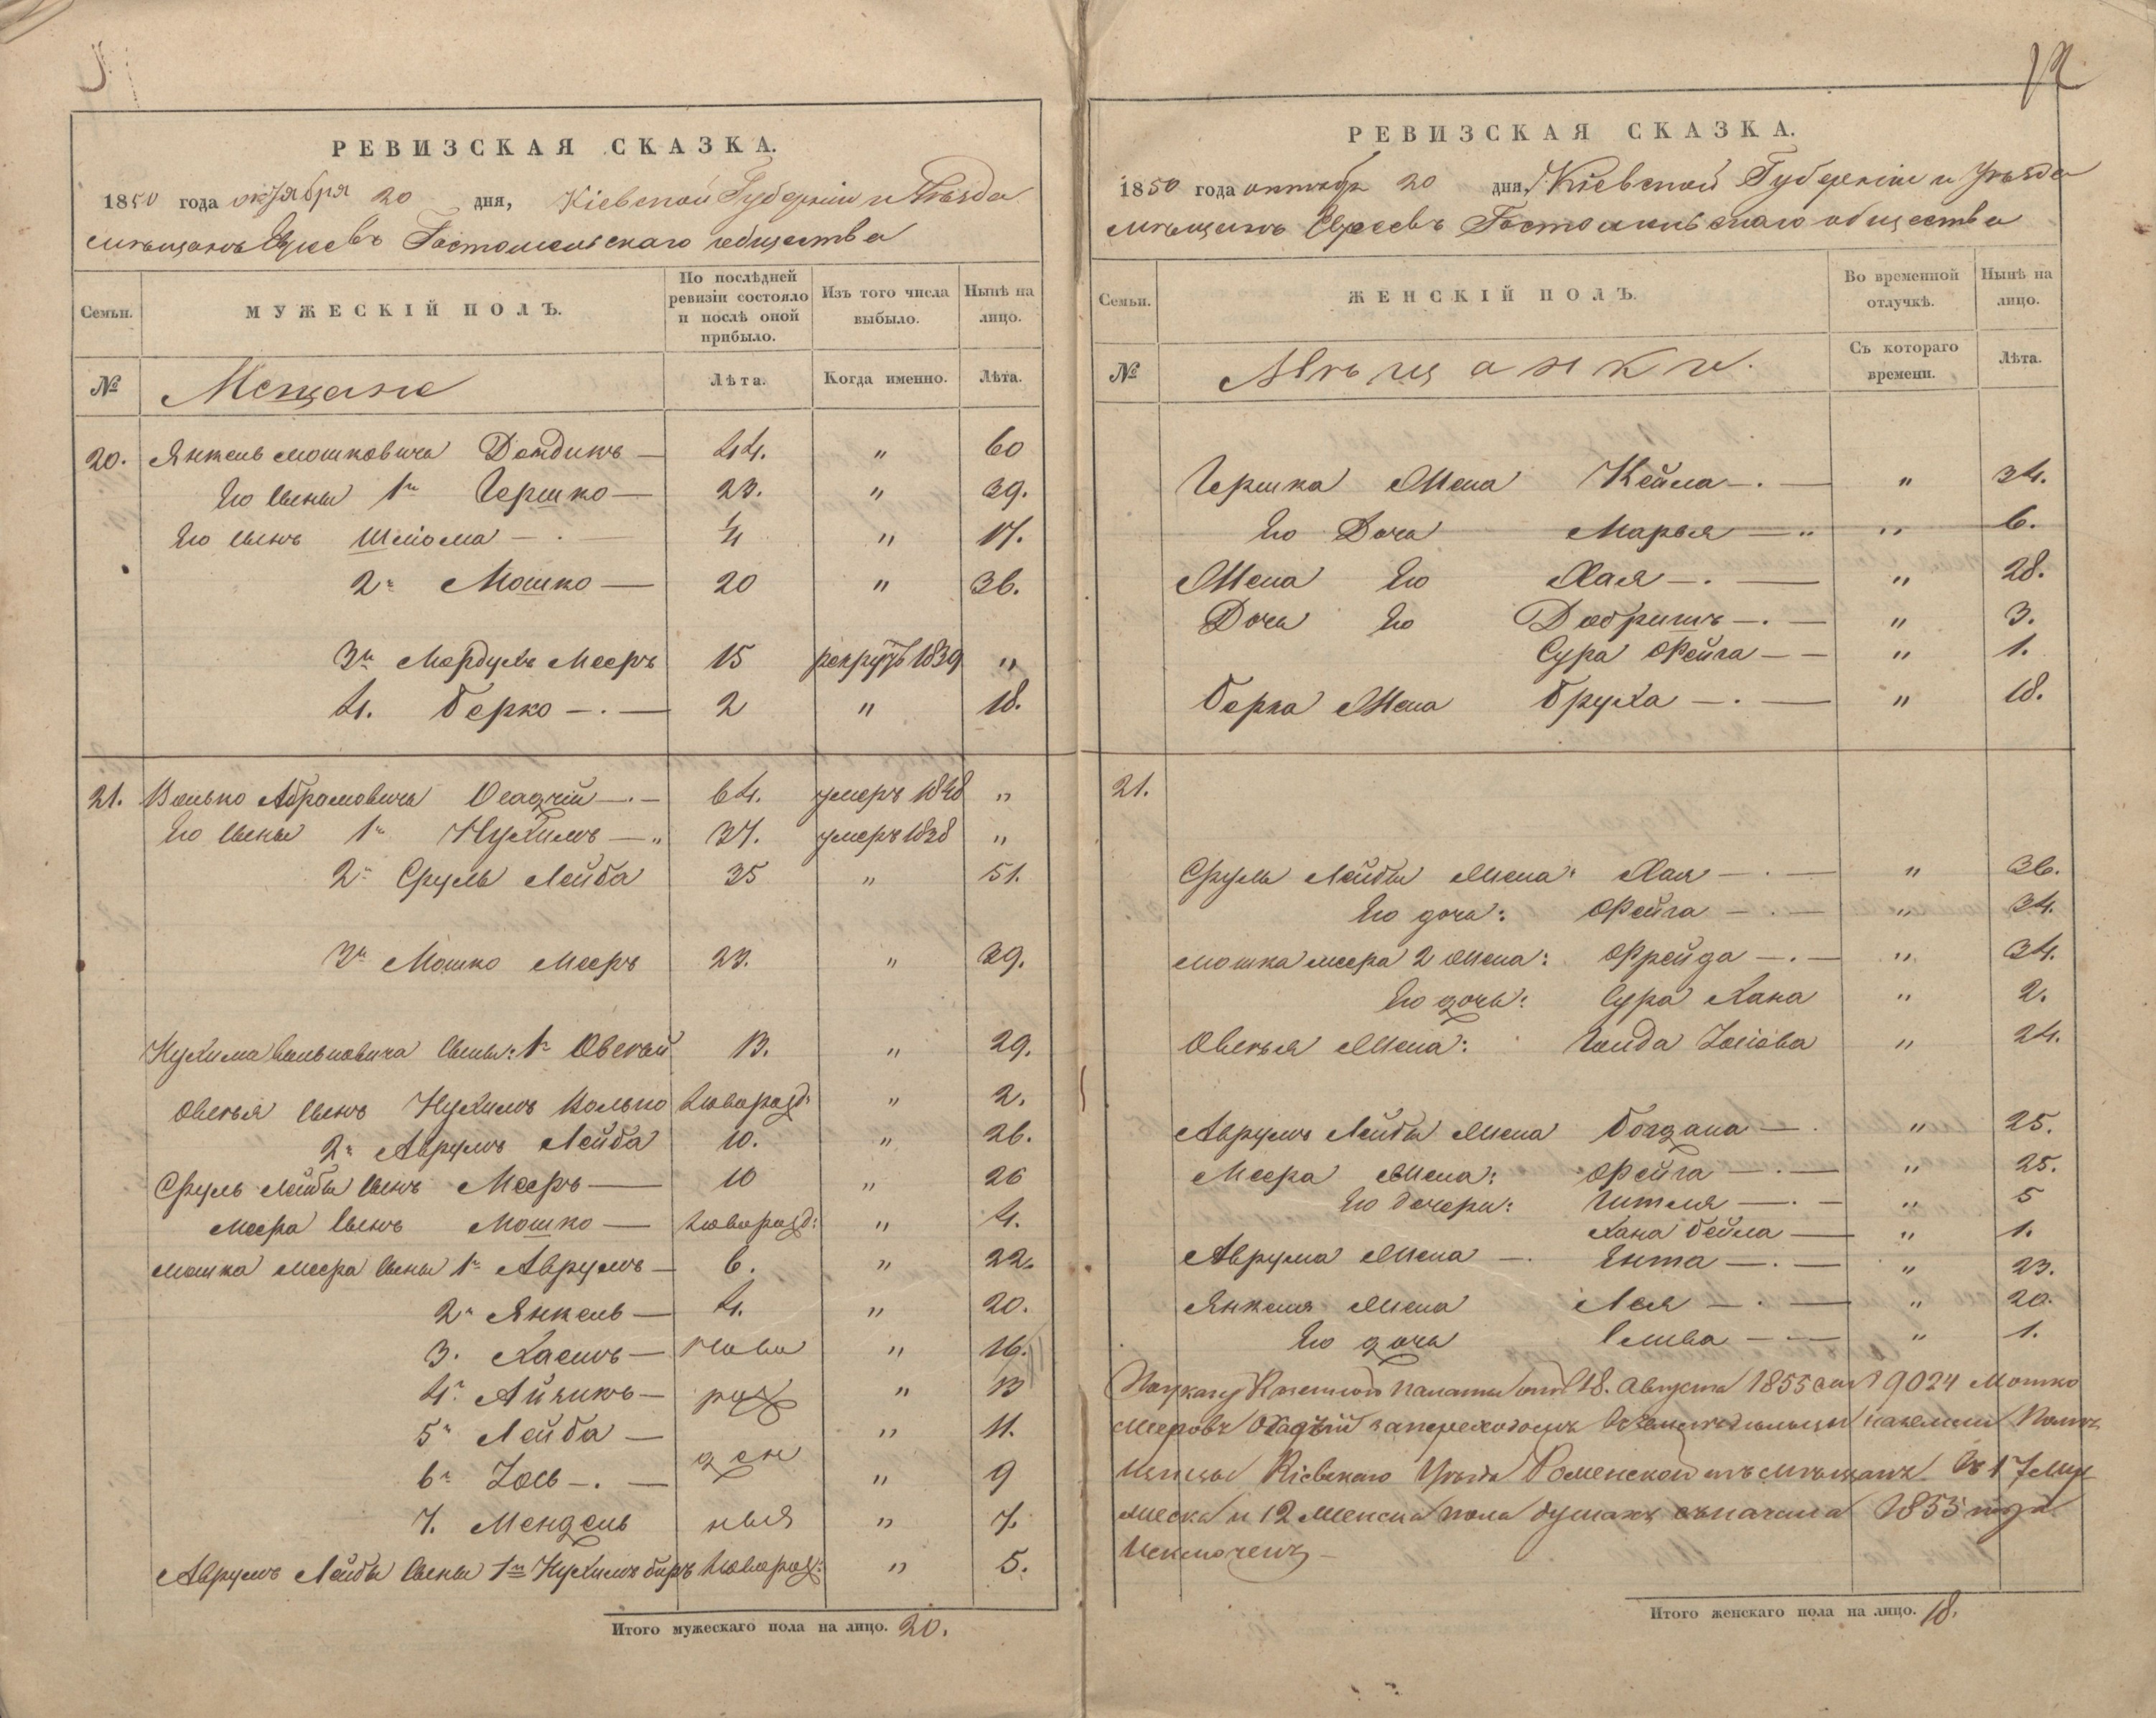 12
РЕВИЗСКАЯ СКАЗКА.
1850 года октября 20 дня, Кіевской Губерніи и Уѣзда
мѣщанъ Евреевъ Гостомельскаго общества
Семьи.
МУЖЕСКІЙ ПОЛЪ.
По послѣдней ревизіи состояло и послѣ оной прибыло.
Изъ того числа выбыло.
Нынѣ на лицо.
№
Мещане
Лѣта.
Когда именно.
Лѣта.
20. Янкель Мошковичъ Дондикъ — 44. " 60
Его сыны 1й Гершко — 23. " 39.
Его сынъ Шліома — . ¼ " 17.
2й Мошко — 20 " 36.
3й Мордухъ Мееръ 15 рекрутъ 1839 "
4. Берко — . — 2 " 18.
21. Волько Абрамовичъ — . — 64. умеръ 1848 "
Его сыны 1й Нухимъ — " 37. умеръ 1838 "
2й Сруль Лейба 35 " 51.
3й Мошко Мееръ 23. " 39.
Нухима Вольковича сыны: 1й Овсей 13. " 29.
Овсея сынъ Нухимъ Волько новорожд: " 2.
2й Аврумъ Лейба 10. " 26.
Сруль Лейбы сынъ Мееръ — 10 " 26
Меера сынъ Мошко — новорожд: " 4.
Мошка Меера сыны 1й Аврумъ — 6. " 22.
2й Янкель — 4. " 20.
3. Хаимъ — ново " 16.
4й Айзикъ — рож " 13
5й Лейба — " 11.
6й Іось — . — ден " 9
7. Мендель ныя " 7.
Аврумъ Лейбы сыны 1й Нухимъ Беръ новорож: " 5.
Итого мужескаго пола на лицо. 20.
РЕВИЗСКАЯ СКАЗКА.
1850 года октября 20 дня, Кіевской Губерніи и Уѣзда
мѣщанъ Евреевъ Гостомельскаго общества
Семьи.
ЖЕНСКІЙ ПОЛЪ.
Во временной отлучкѣ.
Нынѣ на лицо.
№
Мѣщанки.
Съ котораго времени.
Лѣта.
Гершка Жена Кейла — . — " 34.
Его Дочь Марья — " " 6.
Жена Его Хая — . — " 28.
Дочь Его Добришъ — . — " 3.
Сура Фейга — — " 1.
Берка Жена Бруха — . — " 18.
21.
Сруль Лейбы Жена: Хая — . — " 36.
Его дочь: Фейга — . — " 34.
Мошка Меера 2 жена: Фрейда — . — " 34.
Его дочь: Сура Хана " 2.
Овсея Жена: Голда Іосіова " 24.
Аврумъ Лейбы Жена Богдана — . " 25.
Меера Жена: Фейга — . — " 25.
Его дочери: Гителя — . — " 5
Хана Бейла — " 1.
Аврума Жена — . Ента — . — " 23.
Янкеля Жена Лея — . — " 20.
Его дочь Слива — — " 1.
По указу Казенной Палаты отъ 18. Августа 1855 за № 9024 Мошко
Мееровъ за переходомъ въ земледѣльцы
Кіевскаго Уѣзда изъ мѣщанъ въ 17 муж
жеска и 12 женска пола душахъ съ начала 1855 года
Исключенъ —
Итого женскаго пола на лицо. 18.